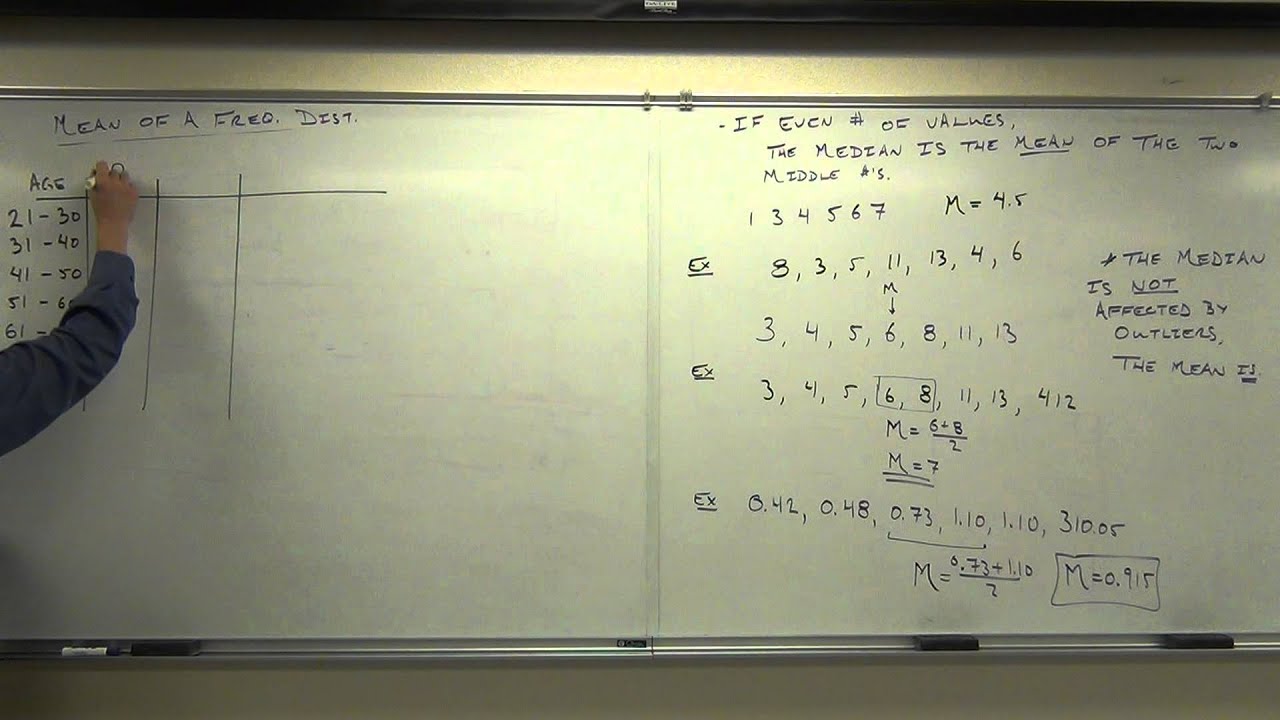 MEAN OF A FREQ. DIST.
AGE
21 - 30
31 - 40
41 - 50
51 - 60
61 -
- IF EVEN # OF VALUES,
THE MEDIAN IS THE MEAN OF THE TWO
MIDDLE #'S.
1 3 4 5 6 7 M = 4.5
Ex 8, 3, 5, 11, 13, 4, 6
M
↓
3, 4, 5, 6, 8, 11, 13
* THE MEDIAN
IS NOT
AFFECTED BY
OUTLIERS,
THE MEAN IS.
Ex 3, 4, 5, 6, 8, 11, 13, 412
M = 6+8/2
M = 7
Ex 0.42, 0.48, 0.73, 1.10, 1.10, 310.05
M = 0.73+1.10/2 M = 0.915